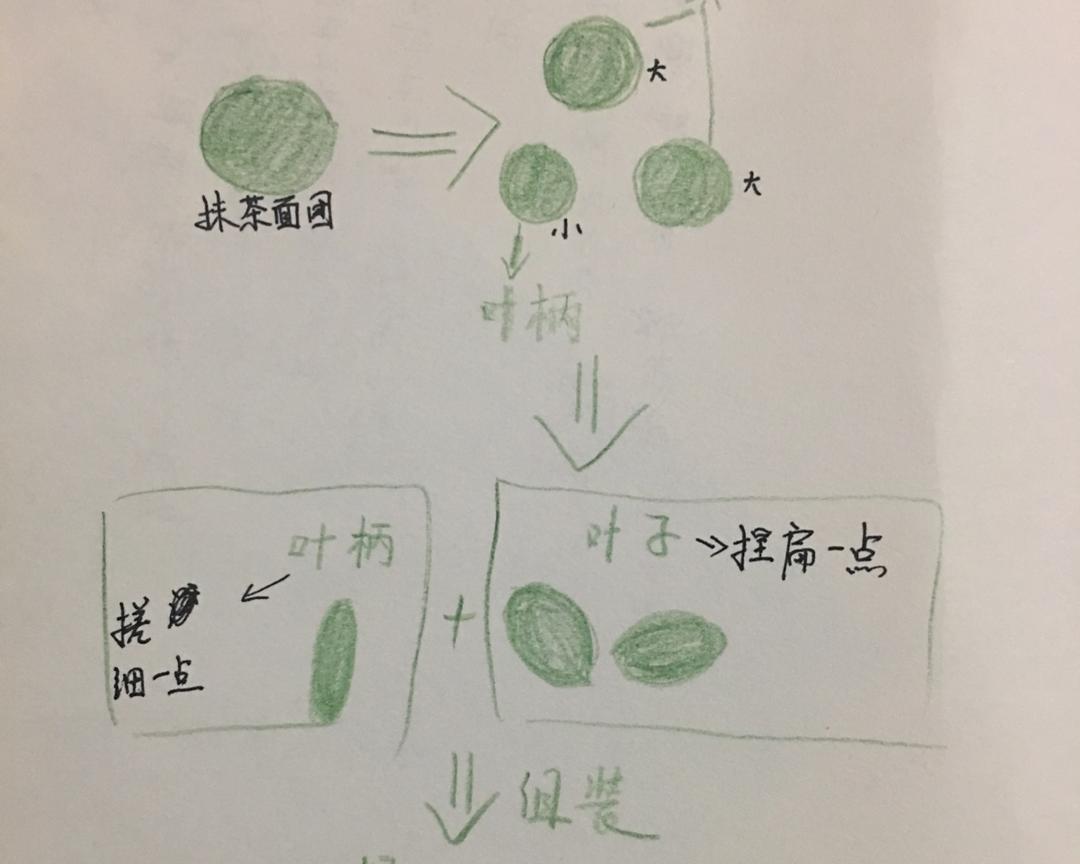 大
抹茶面团
大
小
叶柄
叶柄
叶子
捏扁一点
搓
细一点
组装